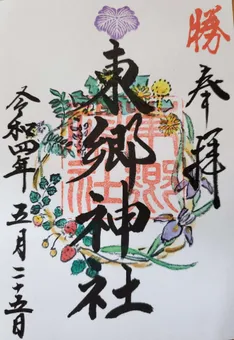 勝
奉拝
東郷神社
東郷神社
令和四年 五月二十五日